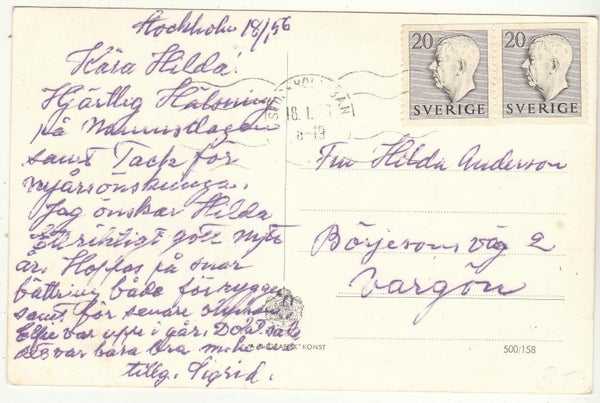 Stockholm 18/1 56
Kära Hilda!
Hjärtlig Hälsning
på Namnsdagen
samt Tack för
nyårsönskninga.
Jag önskar Hilda
ett riktigt gott nytt
år. Hoppas på snar
bättring både för ryggen
samt för
var uppe i går.
det var bara bra
tillg. Sigrid.
20 20
SVERIGE SVERIGE
STOCKHOLM
18.1.
8-19
Fru Hilda Anderson
Börjesons väg 2
Vargön
KONST
500/158